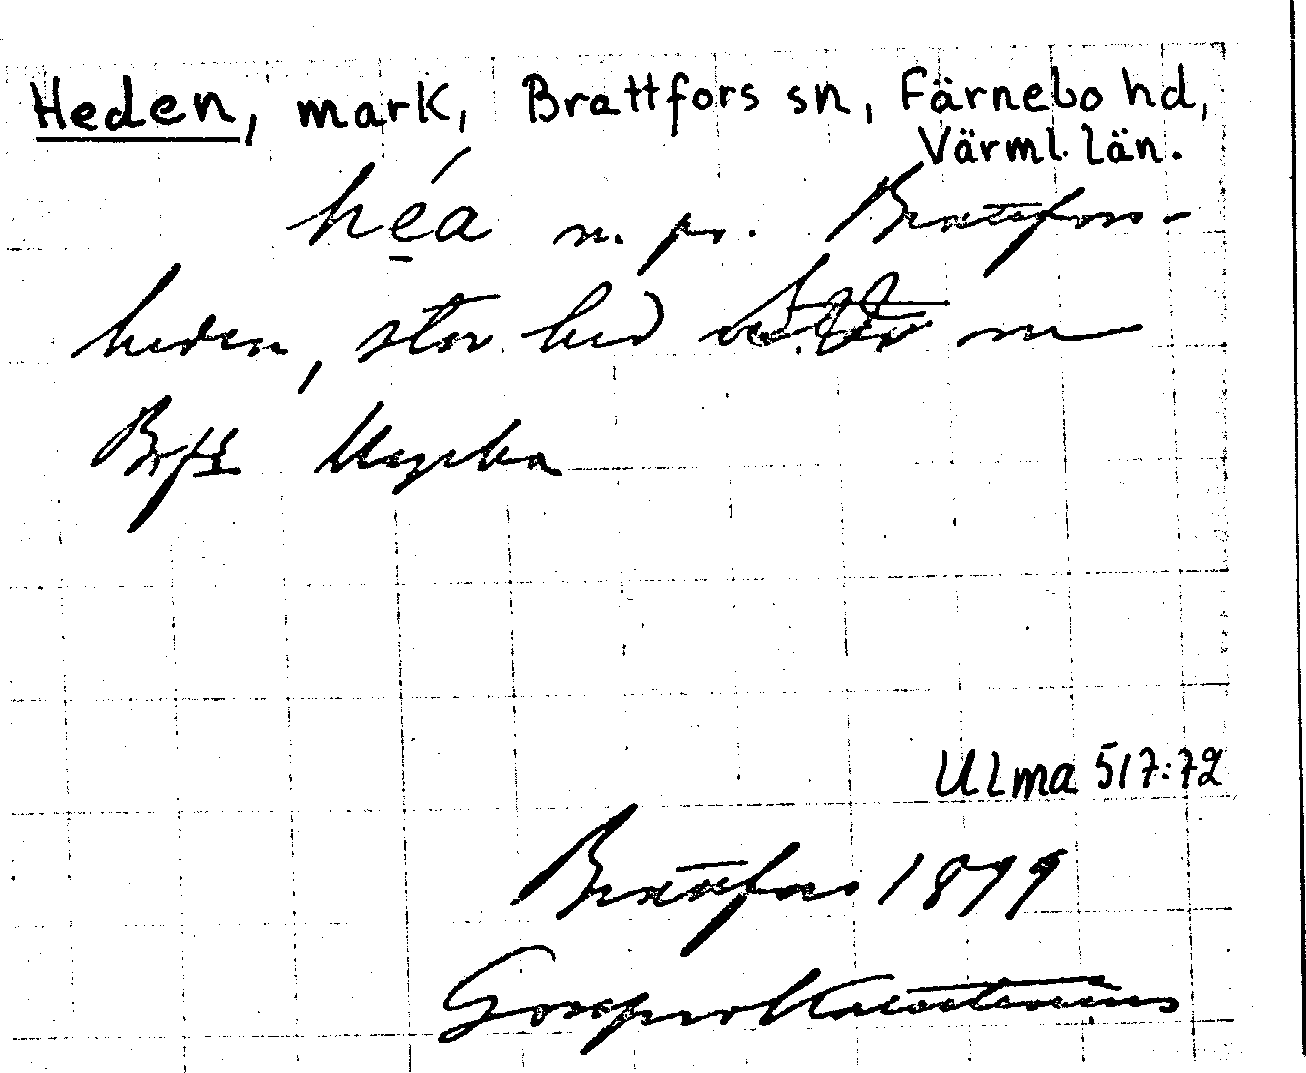 Heden, mark, Brattfors sn, Färnebo hd,
Värml. län.
héa n. pr. Brattfors-
heden, stor hed
Brfs kyrka
Ulma 517:72
Brattfors 1899